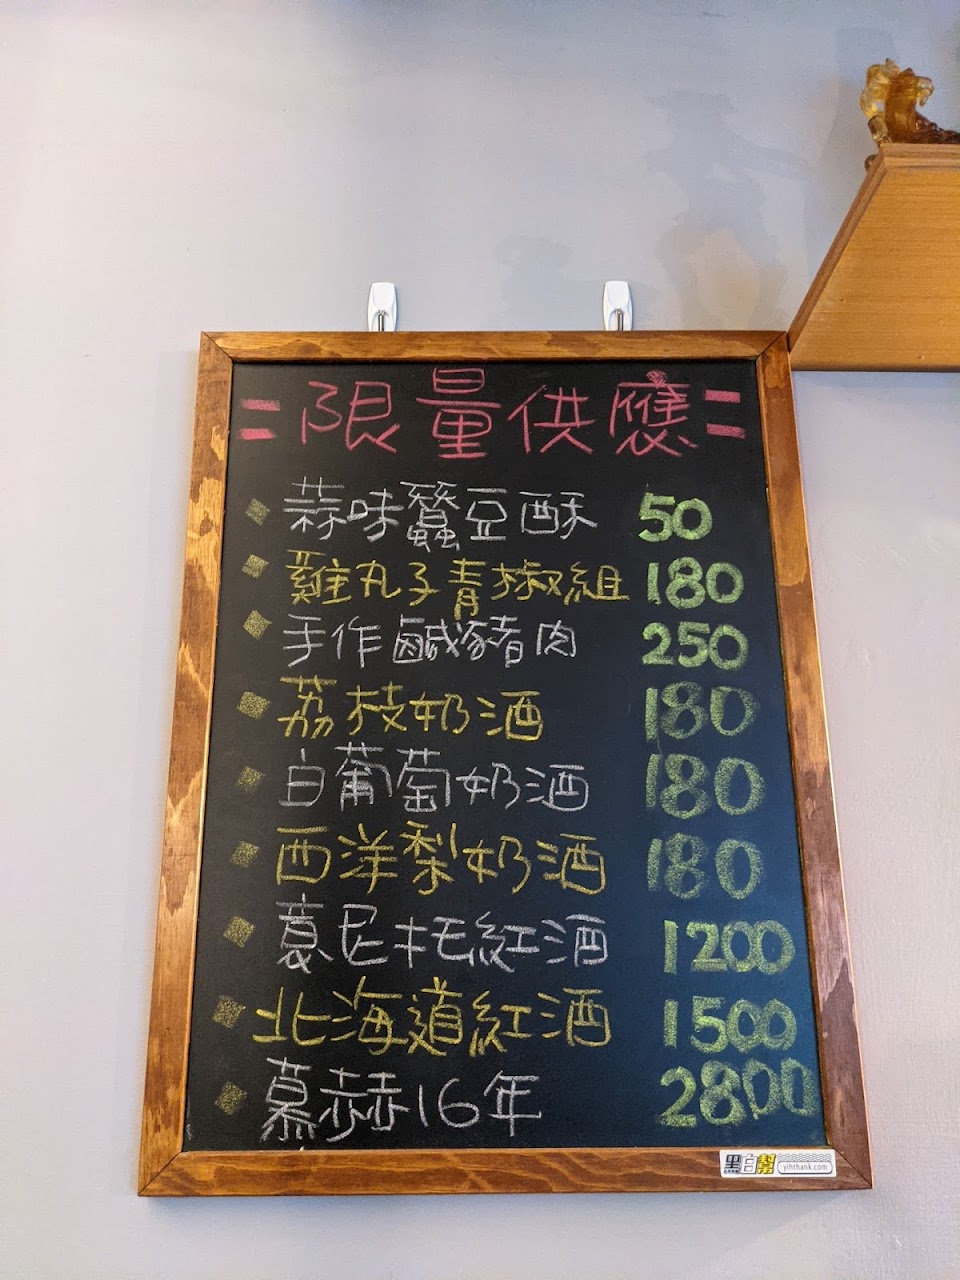 =限量供應=
蒜味蠶豆酥 50
雞丸子青椒組 180
手作鹹豬肉 250
荔枝奶酒 180
白葡萄奶酒 180
西洋梨奶酒 180
慕尼杜紅酒 1200
北海道紅酒 1500
慕赫16年 2800
黑白幫
yihthank.com